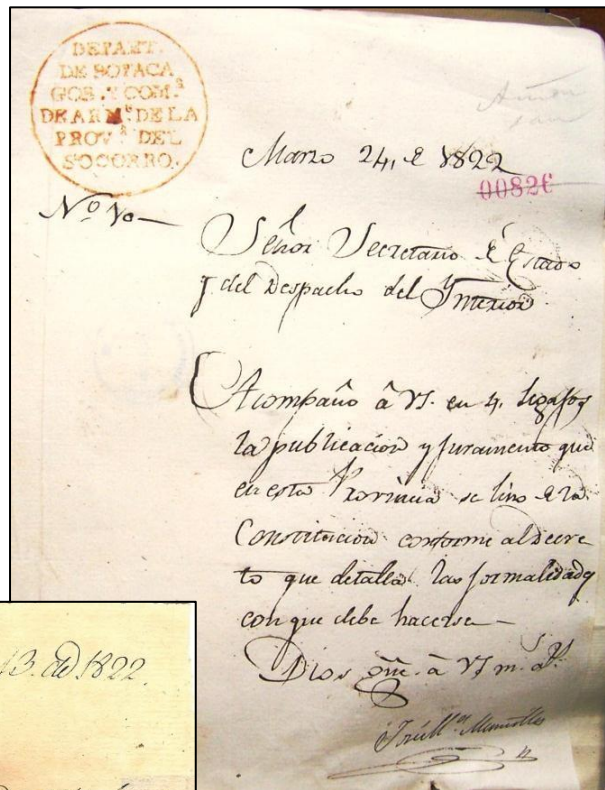 DEPART.
DE BOYACA
GOB. Y COM.ª
DE ARM.ˢ DE LA
PROV.ª DEL
SOCORRO.
Marzo 24, de 1822
00826
Nº 10—
Señor Secretario de Estado
y del Despacho del Interior
Acompaño â VS. en 4. legajos
la publicacion y juramento que
en esta Provincia se hiso de la
Constitucion conforme al decre
to que detalla las formalidades
con que debe hacerse—
Dios gũe. a VS m. aˢ.
13. de 1822.